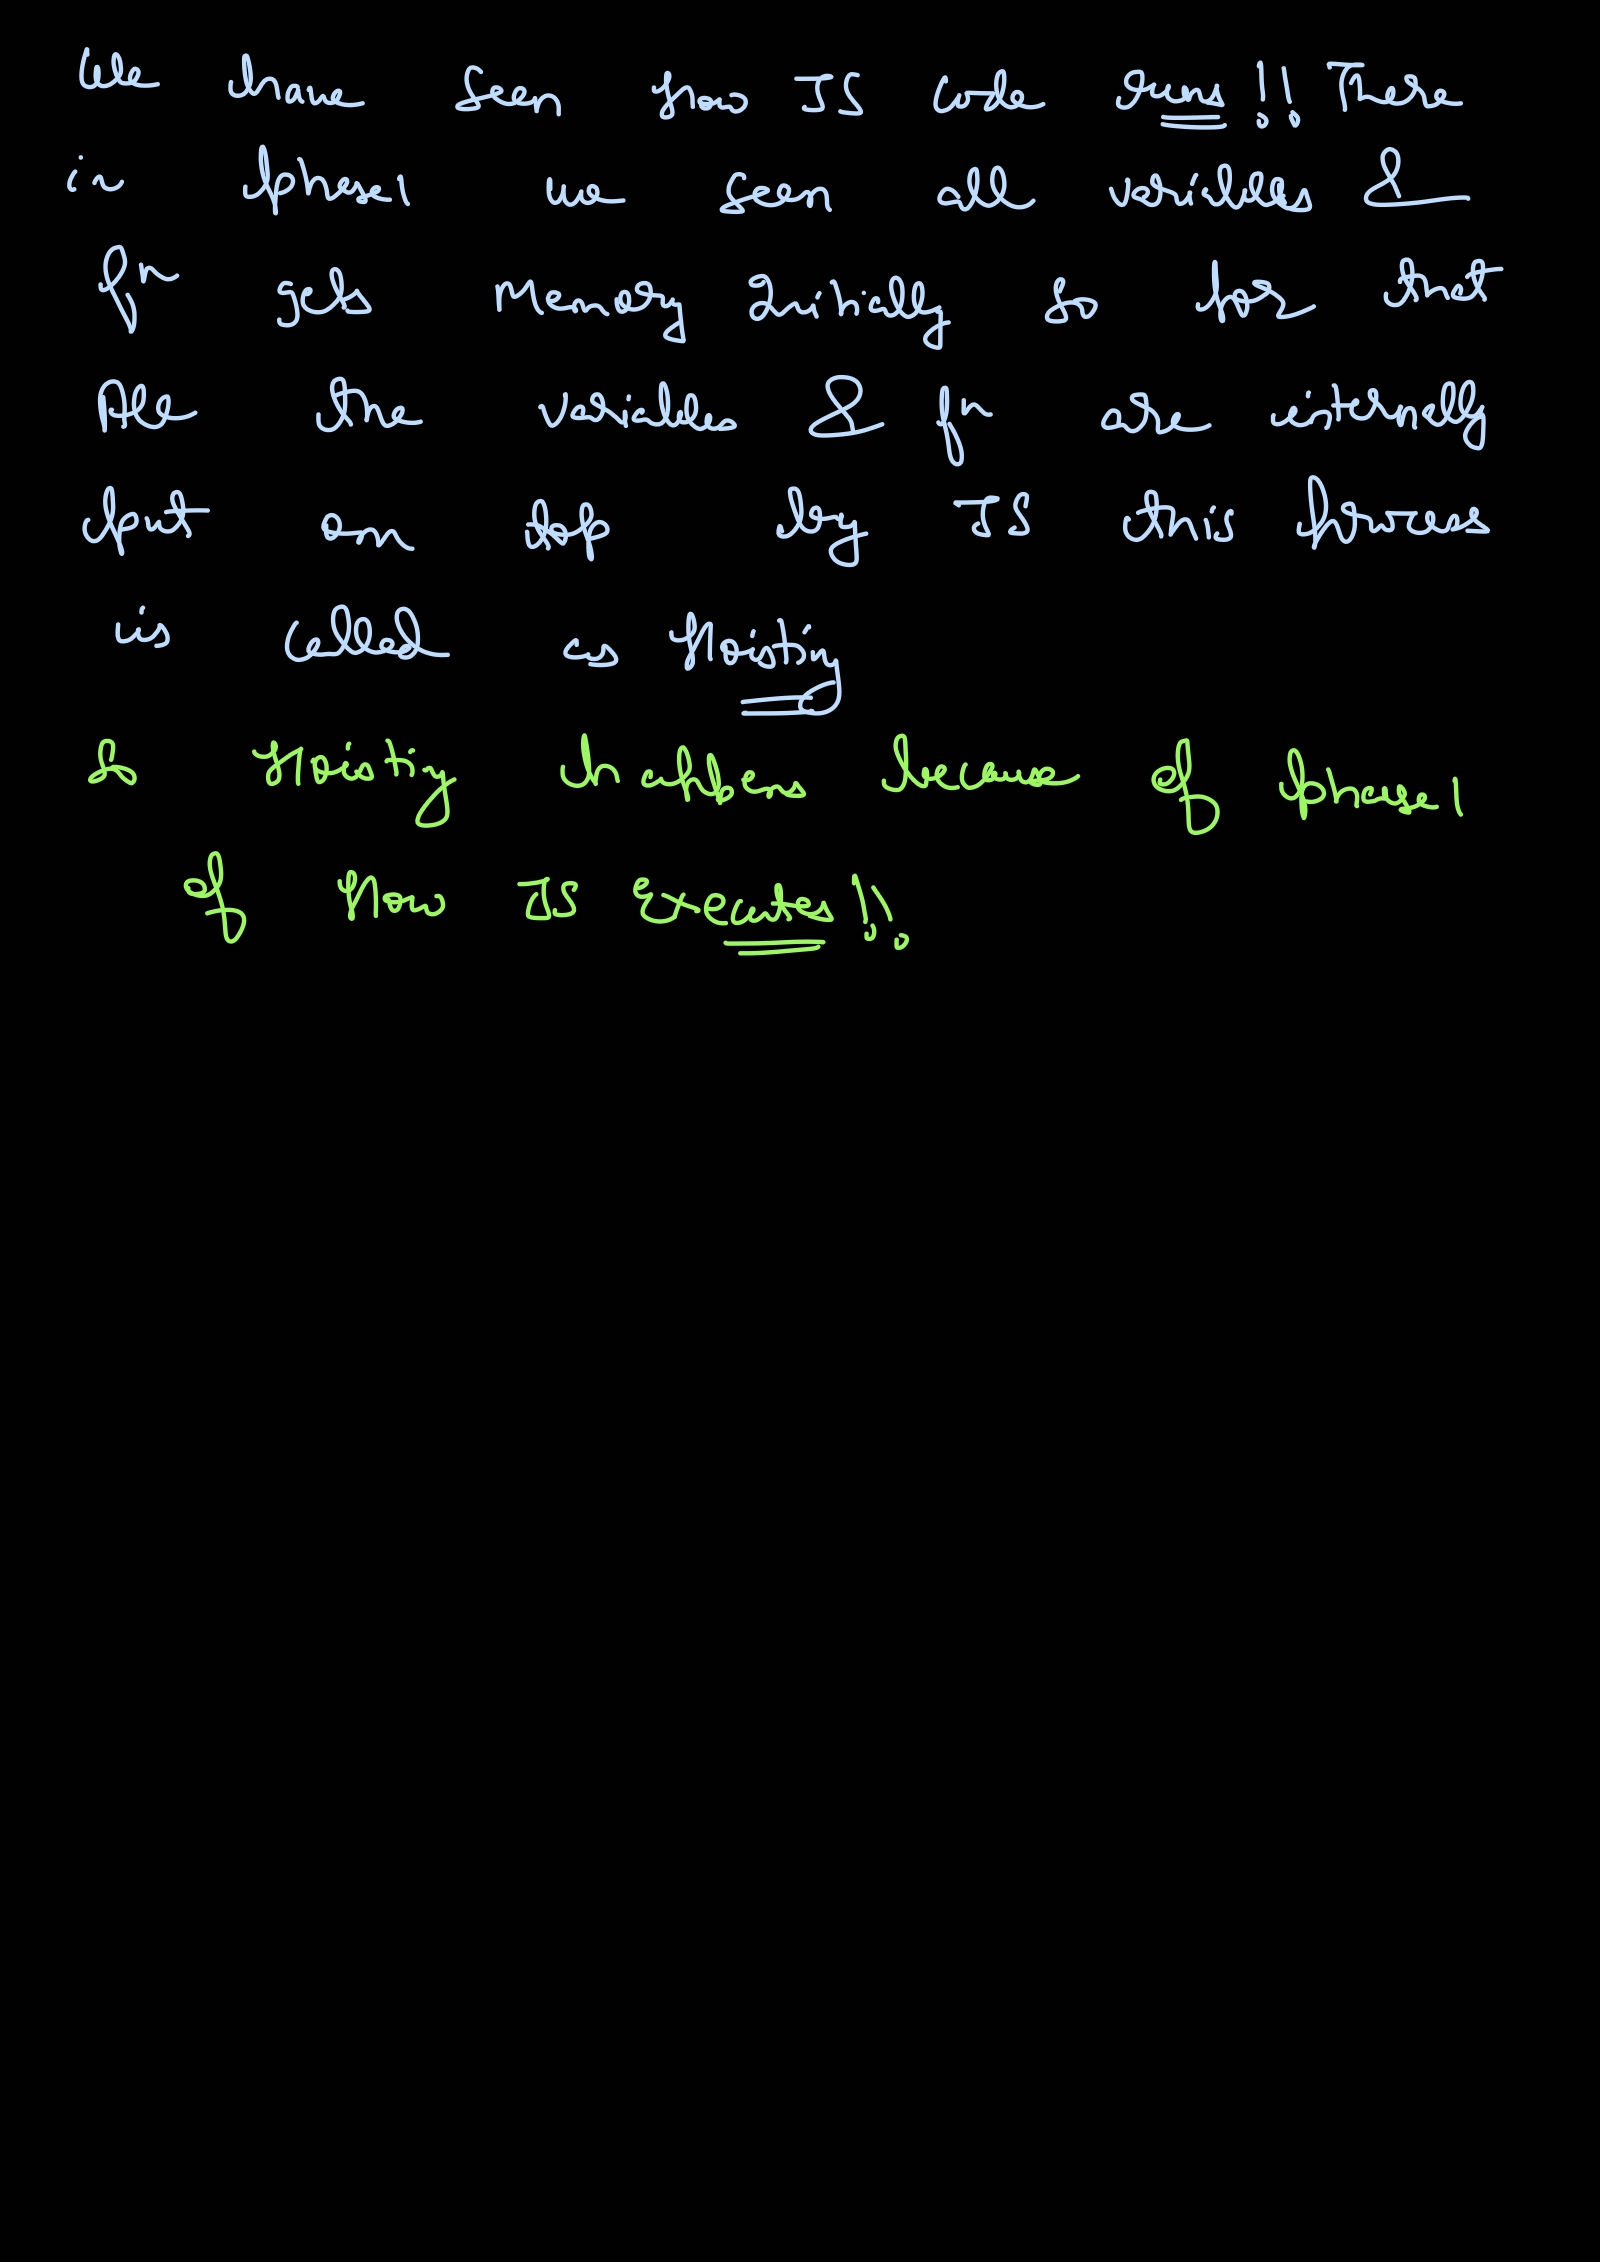 We have seen how JS code runs!! There
in phase1 we seen all variables &
fn gets Memory Initially so for that
All the variables & fn are internally
put on top by JS this process
is called as Hoisting
So Hoisting happens because of phase1
of How JS Executes!!